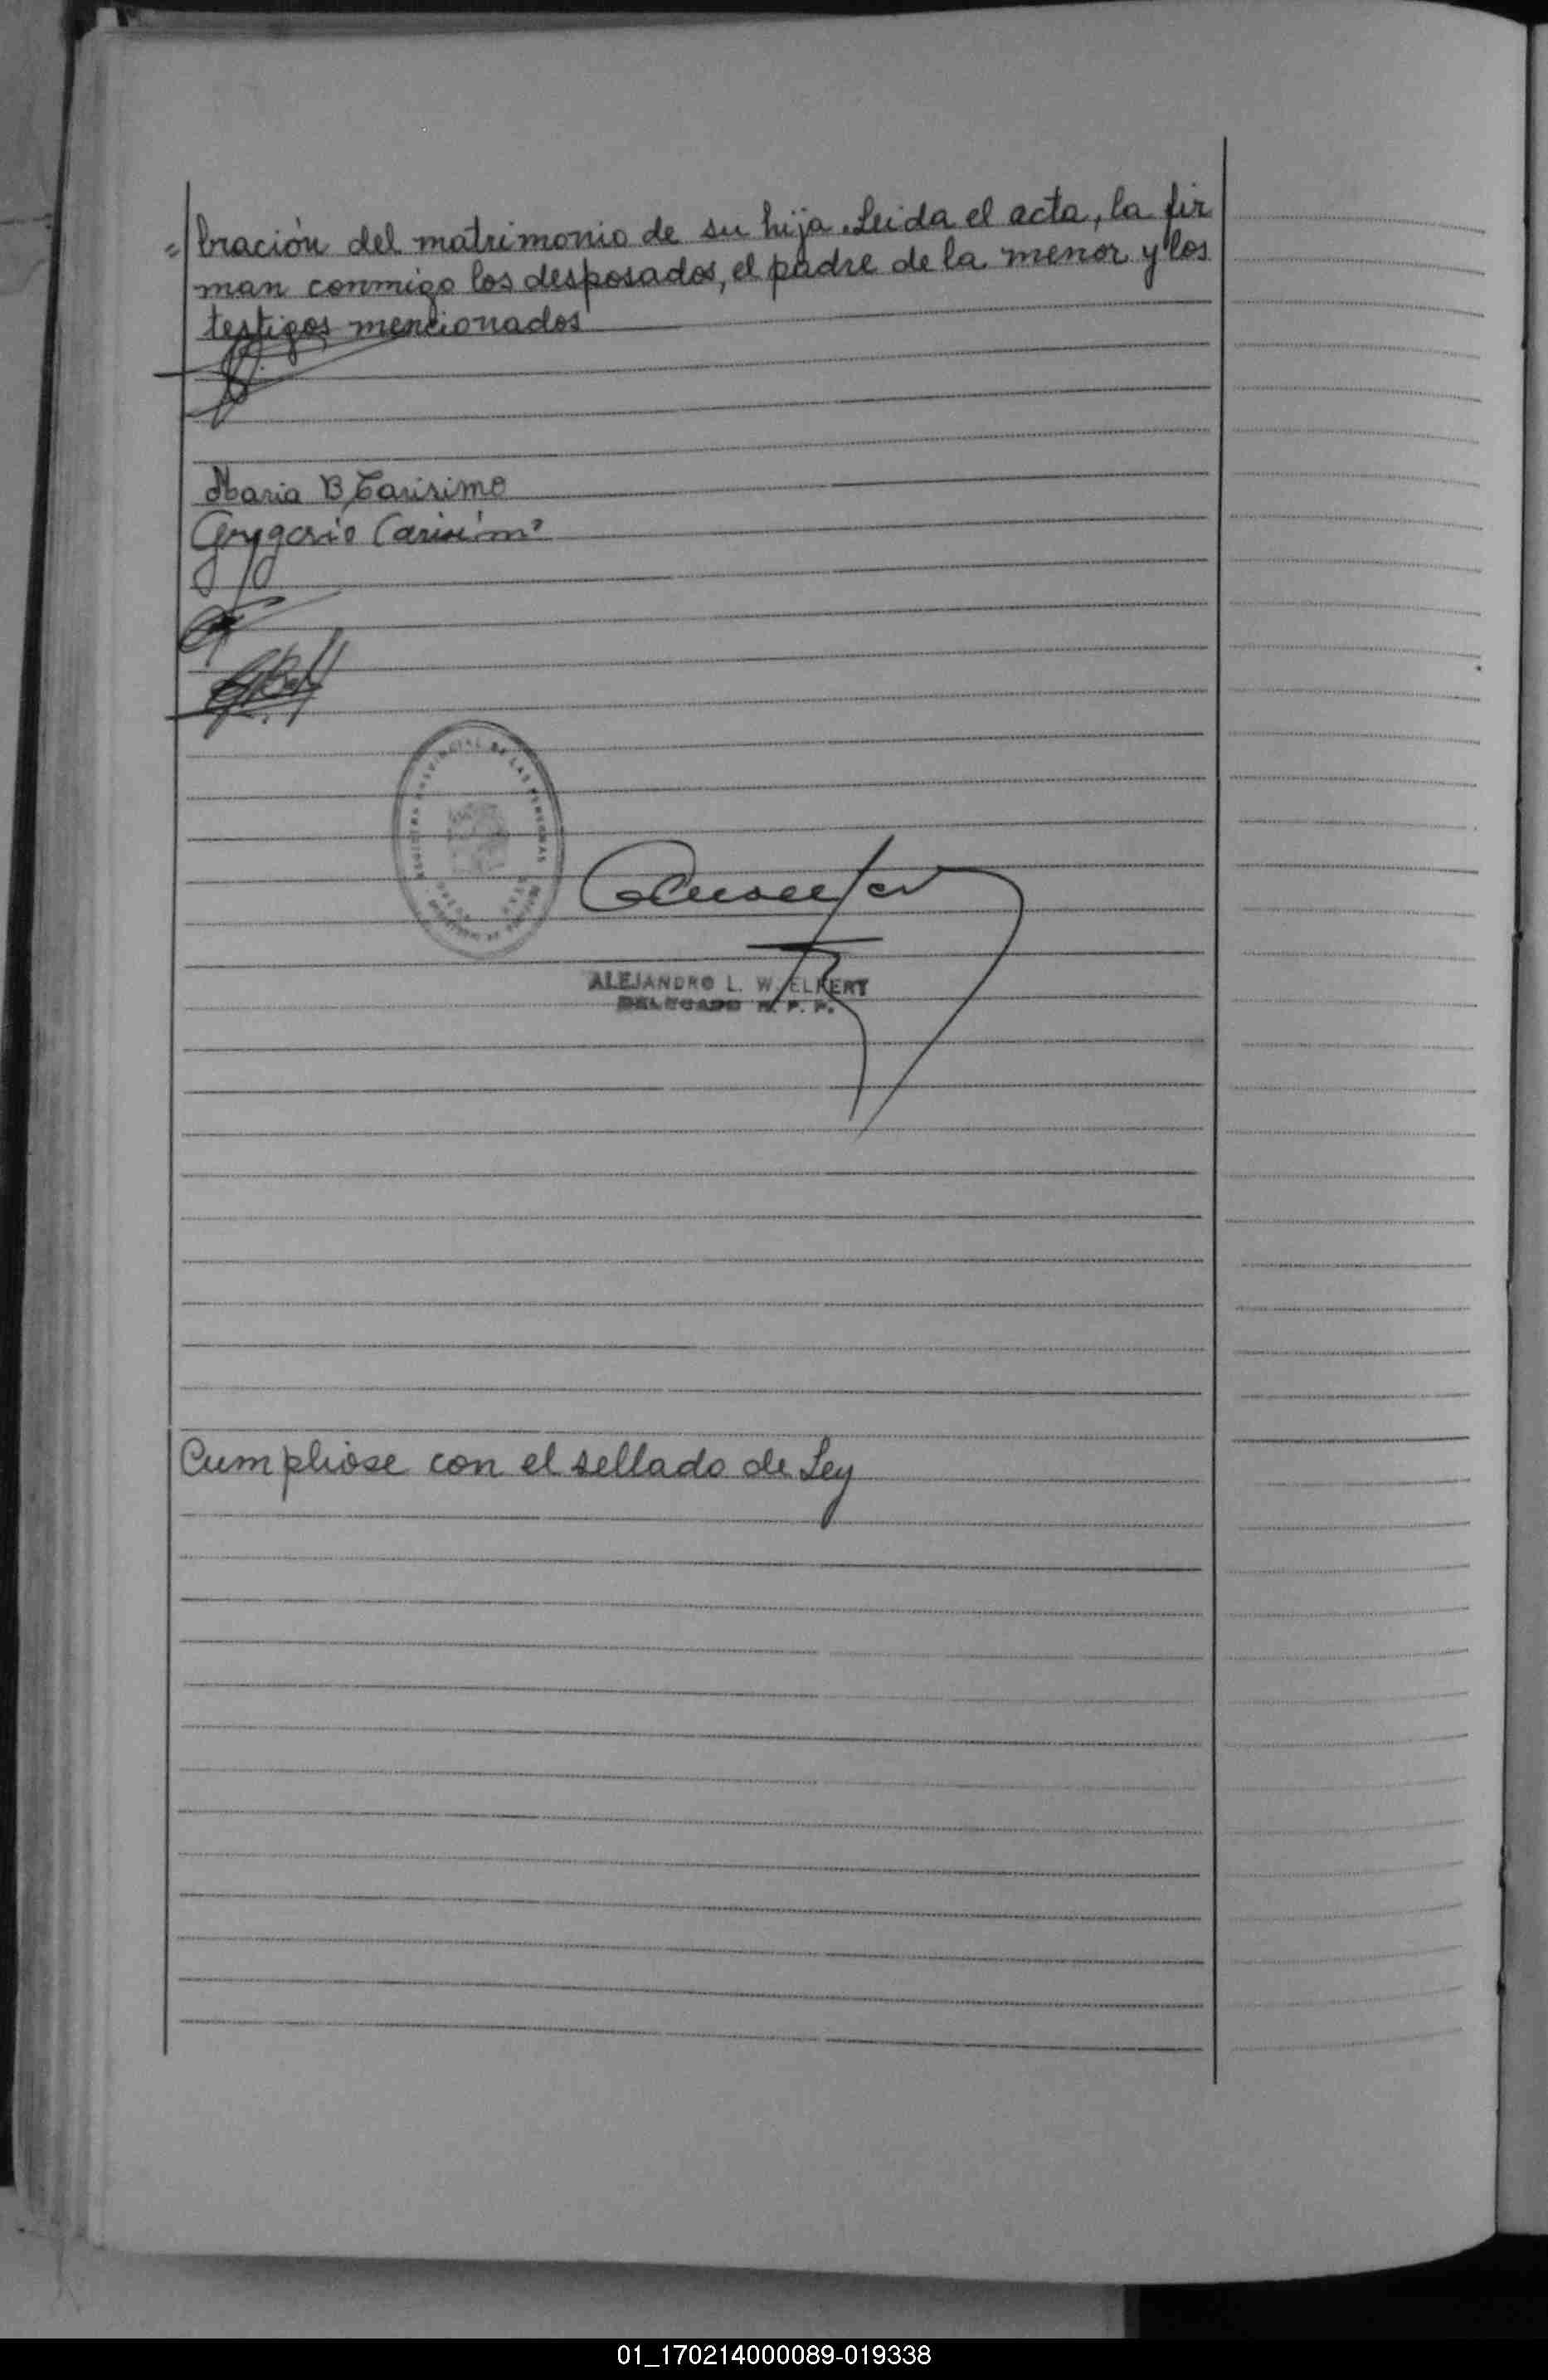 = bración del matrimonio de su hija. Leida el acta, la fir
man conmigo los desposados, el padre de la menor y los
testigos mencionados
Maria B Carisimo
Gregorio Carisimo
REGISTRO PROVINCIAL DE LAS PERSONAS
ALEJANDRO L. W. ELKERT
DELEGADO R. P. P.
Cumpliose con el sellado de Ley
01_170214000089-019338